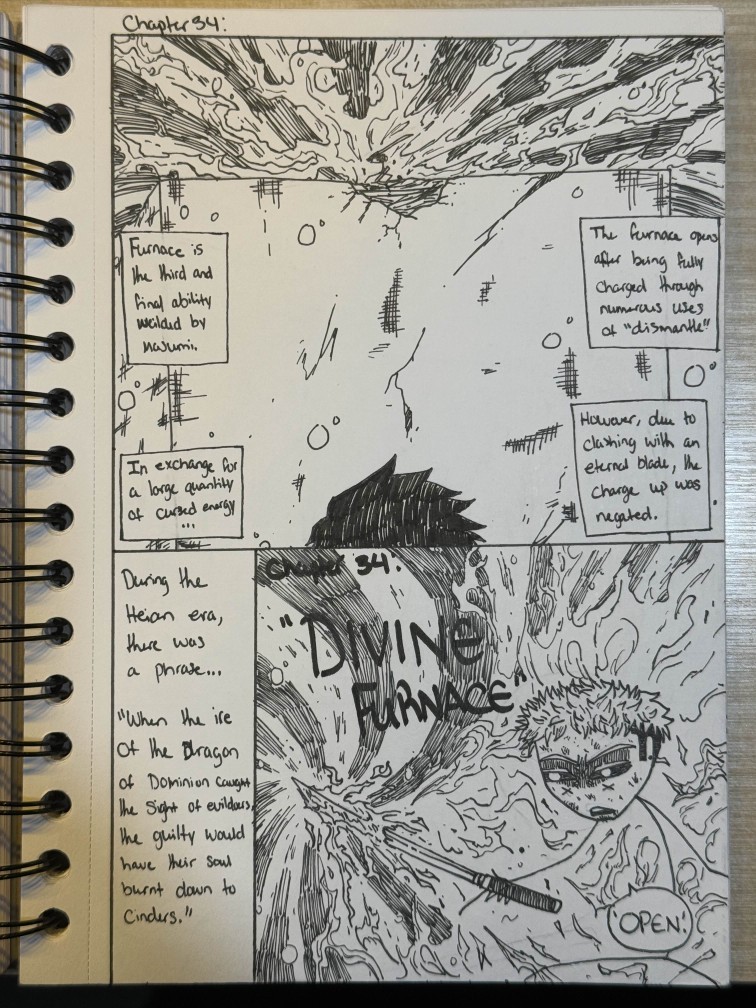 Chapter 34:
Furnace is
the third and
final ability
wielded by
Masumi.
The furnace opens
after being fully
charged through
numerous uses
of "dismantle"
In exchange for
a large quantity
of cursed energy
...
However, due to
clashing with an
eternal blade, the
charge up was
negated.
During the
Heian era,
there was
a phrase...
"When the ire
of the Dragon
of Dominion caught
the sight of evildoers,
the guilty would
have their soul
burnt down to
cinders."
Chapter 34:
"DIVINE
FURNACE"
"OPEN."